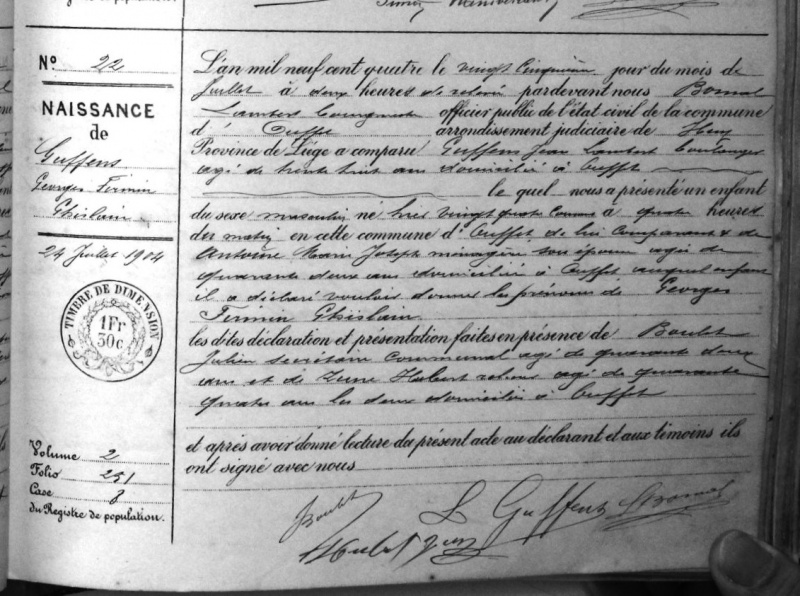 N° 22
NAISSANCE
de
Guffens
Georges Firmin
Ghislain
24 Juillet 1904
TIMBRE DE DIMENSION
1Fr
30c
Volume 2
Folio 251
Case 8
du Registre de population.
L'an mil neuf cent quatre le vingt cinquième jour du mois de
Juillet à deux heures de relevée pardevant nous
Lambert officier public de l'état civil de la commune
d' Ouffet arrondissement judiciaire de Huy
Province de Liége a comparu Guffens Jean Lambert boulanger
agé de trente huit ans domicilié à Ouffet
le quel nous a présenté un enfant
du sexe masculin né hier vingt quatre courant à quatre heures
du matin en cette commune d'Ouffet de lui comparant & de
Antoine Marie Joseph ménagère son épouse agée de
quarante deux ans domiciliée à Ouffet auquel enfant
il a déclaré vouloir donner les prénoms de Georges
Firmin Ghislain.
les dites déclaration et présentation faites en présence de Boulet
Julien secrétaire communal agé de quarante deux
ans et de Hubert agé de quarante
quatre ans les deux domiciliés à Ouffet
et après avoir donné lecture du présent acte au déclarant et aux témoins ils
ont signé avec nous
JBoulet L Guffens
Hubert